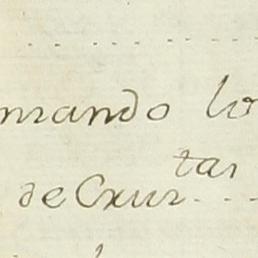 mrando lo
tar
de Crur